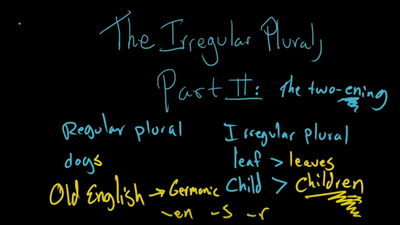 The Irregular Plural,
Part II: The two-ening
Regular plural Irregular plural
dogs leaf > leaves
Old English → Germanic Child > Children
-en -s -r